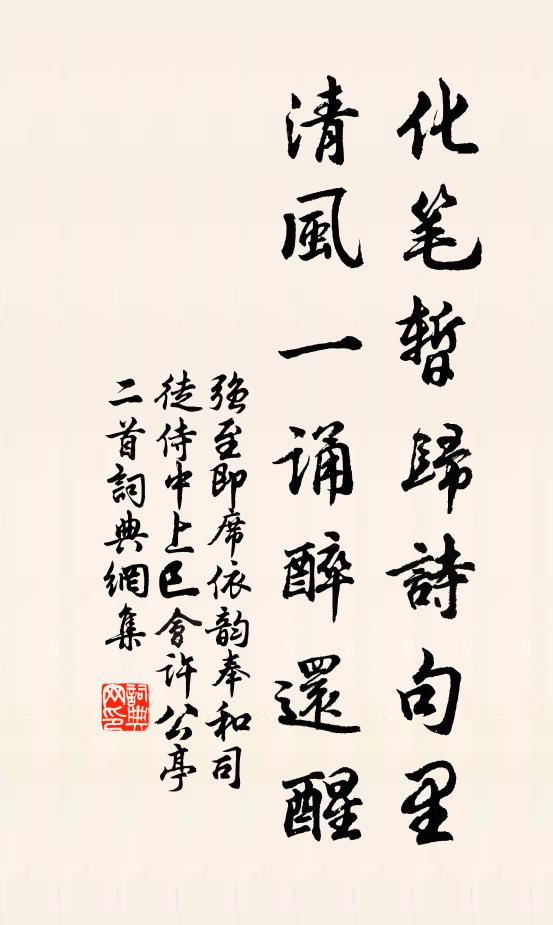 化笔暂歸詩句里
清風一诵醉還醒
强至即席依韵奉和司
徒侍中上巳會许公亭
二首詞典網集
詞典网印